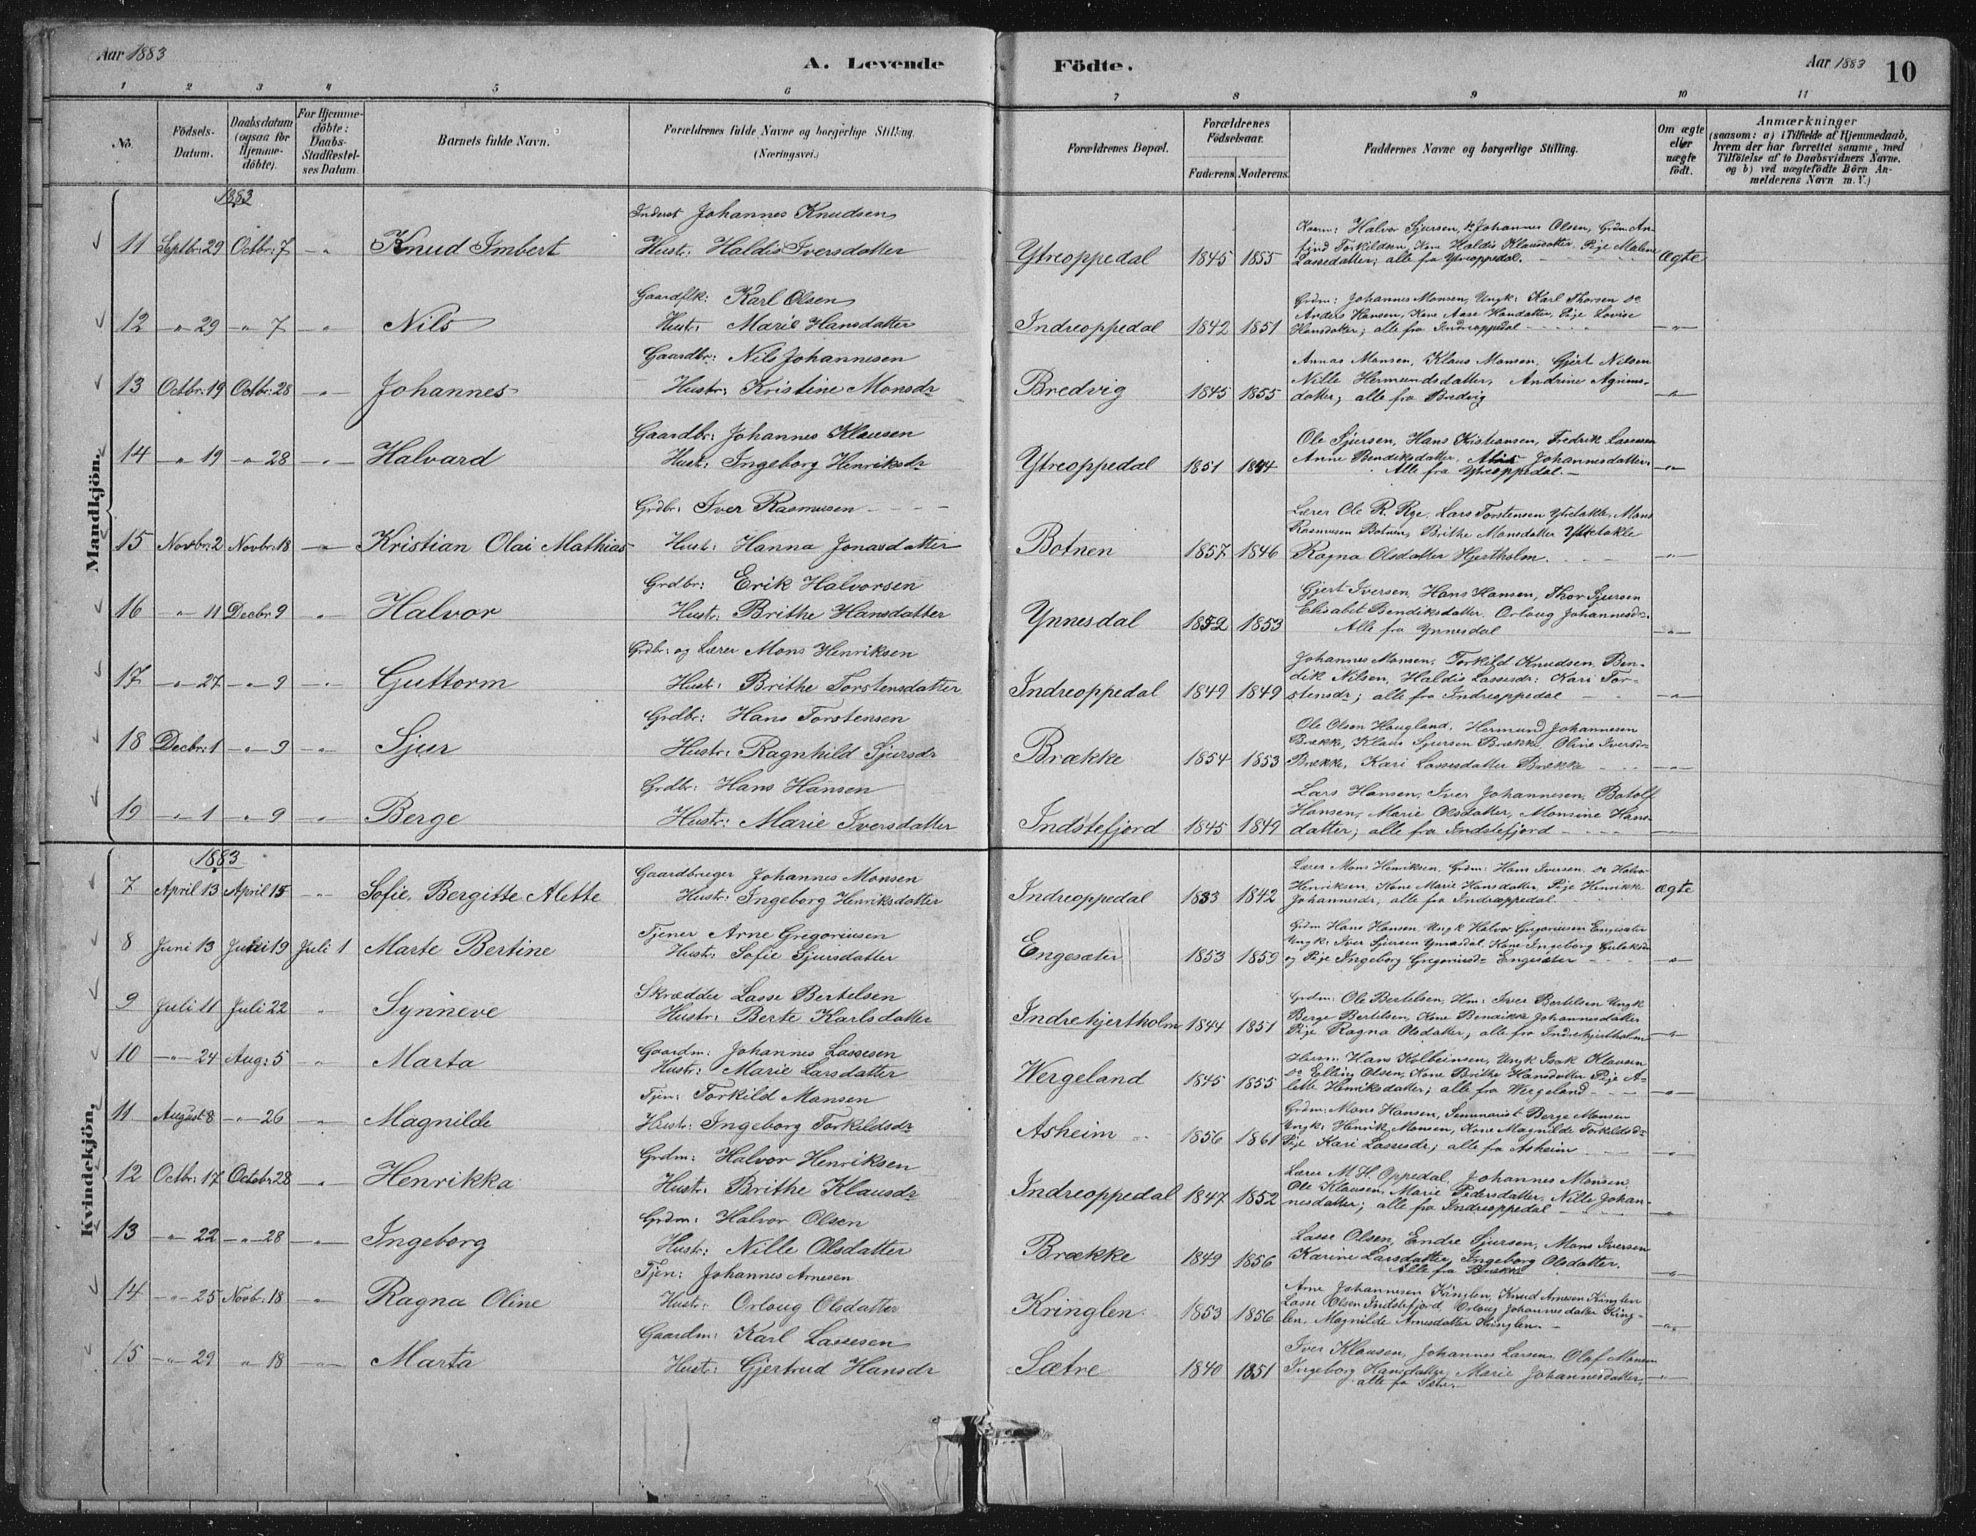 Aar 1883
A. Levende
Födte.
Aar 1883
10
1 2 3 4 5 6 7 8 9 10 11
No.
Födsels-
Datum.
Daabsdatum
(ogsaa for
Hjemme-
döbte).
For Hjemme-
döbte:
Daabs-
Stadfæstel-
ses Datum.
Barnets fulde Navn.
Forældrenes fulde Navne og borgerlige Stilling.
(Næringsvei.)
Forældrenes Bopæl.
Forældrenes
Födselsaar.
Faderens Moderens
Faddernes Navne og borgerlige Stilling.
Om ægte
eller
uægte
födt.
Anmærkninger
(saasom: a) i Tilfælde af Hjemmedaab,
hvem der har forrettet samme, med
Tilföielse af to Daabsvidners Navne.
og b) ved uægtefödte Börn An-
melderens Navn m. V.)
Mandkjön.
1883
Inderst Johannes Knudsen
11 Septbr: 29 Octbr: 7 -"- Knud Imbert Hustr: Haldis Iversdatter Ytreoppedal 1845 1855 ægte
Halvor Sjursen, Johannes Olsen,
Torkildsen, Kone Haldis Klausdatter, Pige Malene
Lassedatter; alle fra Ytreoppedal.
Gaardfk: Karl Olsen
12 -"- 29 -"- 7 -"- Nils Hustr: Marie Hansdatter Indreoppedal 1842 1851 -"-
Grdm: Johannes Monsen, Ungk: Karl Thorsen
Anders Hansen, Kone Aase Hansdatter, Pige Lovise
Hansdatter; alle fra Indreoppedal
Gaardbr: Nils Johannesen
13 Octbr: 19 Octbr: 28 -"- Johannes Hustr: Kristine Monsdr Bredvig 1845 1855 -"-
Annas Monsen, Klaus Monsen, Gjert Nilsen
Nille Hermundsdatter, Andrine
datter; alle fra Bredvig
Gaardbr: Johannes Klausen
14 -"- 19 -"- 28 -"- Halvard Hustr: Ingeborg Henriksdr Ytreoppedal 1851 1844 -"-
Ole Sjursen, Hans Kristiansen, Fredrik Lassesen
Anne Bendiksdatter, Johannesdatter.
Alle fra Ytreoppedal.
Grdbr: Iver Rasmussen
15 Novbr: 2 Novbr: 18 -"- Kristian Olai Mathias Hustr: Hanna Jonasdatter Botnen 1857 1846 -"-
Lærer Ole R. Rye, Lars Torstensen Ytretakle, Mons
Rasmusen Botnen, Brithe Monsdatter Ytretakle
Ragna Olsdatter Hjertholm.
Grdbr: Erik Halvorsen
16 -"- 11 Decbr: 9 -"- Halvor Hustr: Brithe Hansdatter Ynnesdal 1852 1853 -"-
Gjert Iversen, Hans Hansen, Thor Sjursen
Elisabet Bendiksdatter, Orloug Johannesdr.
Alle fra Ynnesdal
Grdbr: og Lærer Mons Henriksen
17 -"- 27 -"- 9 -"- Guttorm Hustr: Brithe Torstensdatter Indreoppedal 1849 1849 -"-
Johannes Monsen, Torkild Knudsen, Ben-
dik Nilsen, Haldis Lassesdr: Kari Tor-
stensdr; alle fra Indreoppedal
Grdbr: Hans Torstensen
18 Decbr: 1 -"- 9 -"- Sjur Hustr: Ragnhild Sjursdr Brække 1854 1853 -"-
Ole Olsen Hougland, Hermund Johannesen
Brække, Klaus Sjursen Brække, Oline Iversdr
Brække, Kari Lassesdatter Brække
Grdbr: Hans Hansen
19 -"- 1 -"- 9 -"- Berge Hustr: Marie Iversdatter Indstefjord 1845 1849 -"-
Lars Hansen, Iver Johannesen, Botolf
Hansen, Marie Olsdatter, Monsine Hans-
datter; alle fra Indstefjord
Kvindekjön.
1883
Gaardbruger Johannes Monsen
7 April 13 April 15 -"- Sofie Bergitte Alette Hustr: Ingeborg Henriksdatter Indreoppedal 1833 1842 ægte
Lærer Mons Henriksen, Grdm: Hans Iversen, Halvor
Henriksen, Kone Marie Hansdatter, Pige Henrikke
Johannesdr, alle fra Indreoppedal
Tjener Arne Gregoriusen
8 Juni 13 Juli 19 Juli 1 Marte Bertine Hustr: Sofie Sjursdatter Engesæter 1853 1859 -"-
Grdm Hans Hansen, Ungk Halvor Gregoriusen Engesæter
Ungk: Iver Sjursen Ynnesdal, Kone Ingeborg
og Pige Ingeborg Gregoriusdr Engesæter
Skrædder Lasse Bertelsen
9 Juli 11 Juli 22 " Synneve Hustr: Berte Karlsdatter Indrehjertholm 1844 1851 -"-
Grdm: Ole Bertelsen, Iver Bertelsen Ungk
Berge Bertelsen, Kone Johannesdatter
Pige Ragna Olsdatter; alle fra Indrehjertholm
Gaardm: Johannes Lassesen
10 -"- 24 Aug: 5 -"- Marta Hustr: Marie Larsdatter Wergeland 1845 1855 -"-
Hans Kolbeinsen, Ungk Isak Klausen
Elling Olsen, Kone Brithe Hansdatter Pige A-
lette Henriksdatter; alle fra Wergeland
Tjen: Torkild Monsen
11 August 8 -"- 26 -"- Magnilde Hustr: Ingeborg Torkildsdr Asheim 1856 1861 -"-
Grdm: Mons Hansen, Seminarist Berge Monsen
Ungk: Henrik Monsen, Kone Magnilde Torkildsdr
Pige Kari Lassesdr; alle fra Asheim
Grdm: Halvor Henriksen
12 Octbr: 17 Octobr 28 -"- Henrikka Hustr: Brithe Klausdr Indreoppedal 1847 1852 -"-
Lærer M. H. Oppedal, Johannes Monsen,
Ole Klausen, Marie Pedersdatter, Nille Johan-
nesdatter; alle fra Indreoppedal
Grdm: Halvor Olsen
13 -"- 22 -"- 28 -"- Ingeborg Hustr: Nille Olsdatter Brække 1849 1856 -"-
Lasse Olsen, Endre Sjursen, Mons Iversen
Karine Larsdatter, Ingeborg Olsdatter.
Alle fra Brække
Tjen: Johannes Arnesen
14 -"- 25 Novb: 18 -"- Ragna Oline Hustr: Orloug Olsdatter Kringlen 1853 1856 -"-
Arne Johannesen Kringlen, Knud Arnesen Kringlen
Lasse Olsen Indstefjord, Orloug Johannesdatter Kring-
len, Magnilde Arnesdatter Kringlen
Gaardm: Karl Lassesen
15 -"- 29 " 18 -"- Marta Hustr: Gjertrud Hansdr Sætre 1840 1851 -"-
Iver Klausen, Johannes Larsen, Olaf Monsen
Ingeborg Hansdatter, Marie Johannesdatter,
alle fra Sætre.